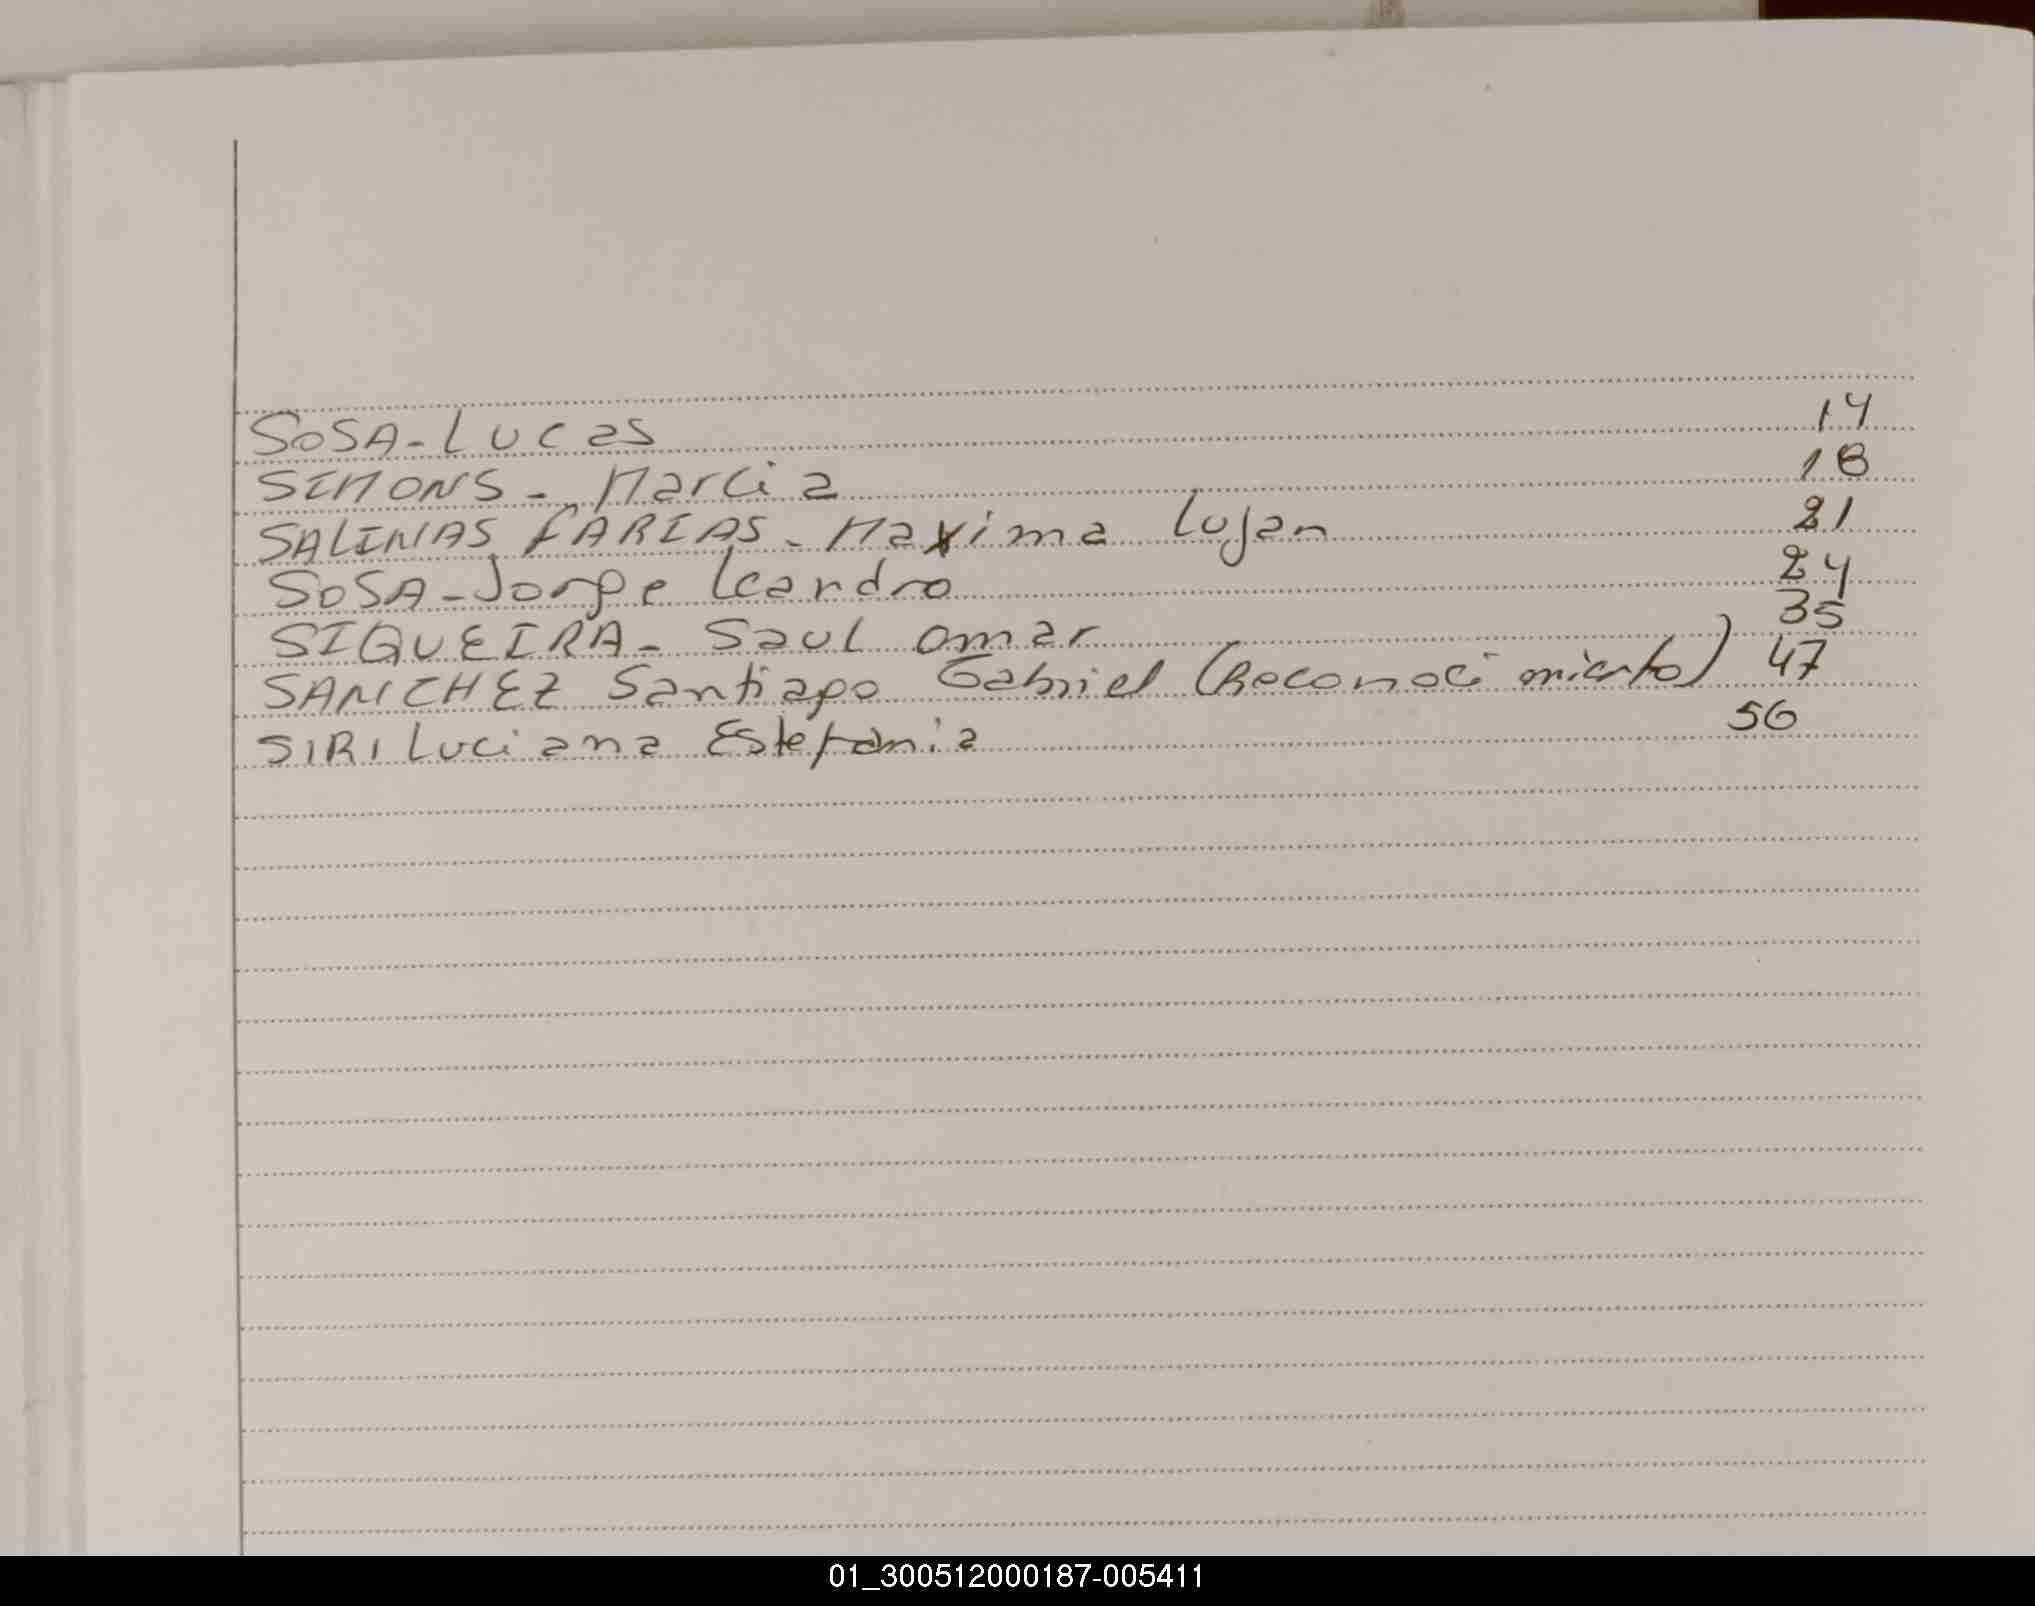 SOSA-Lucas 14
SIMONS - Marcia 18
SALINAS FARIAS - Maxima Lujan 21
SOSA-Jorge Leandro 24
SIQUEIRA - Saul omar 35
SANCHEZ Santiago Gabriel (Reconocimiento) 47
SIRI Luciana Estefania 56
01_300512000187-005411